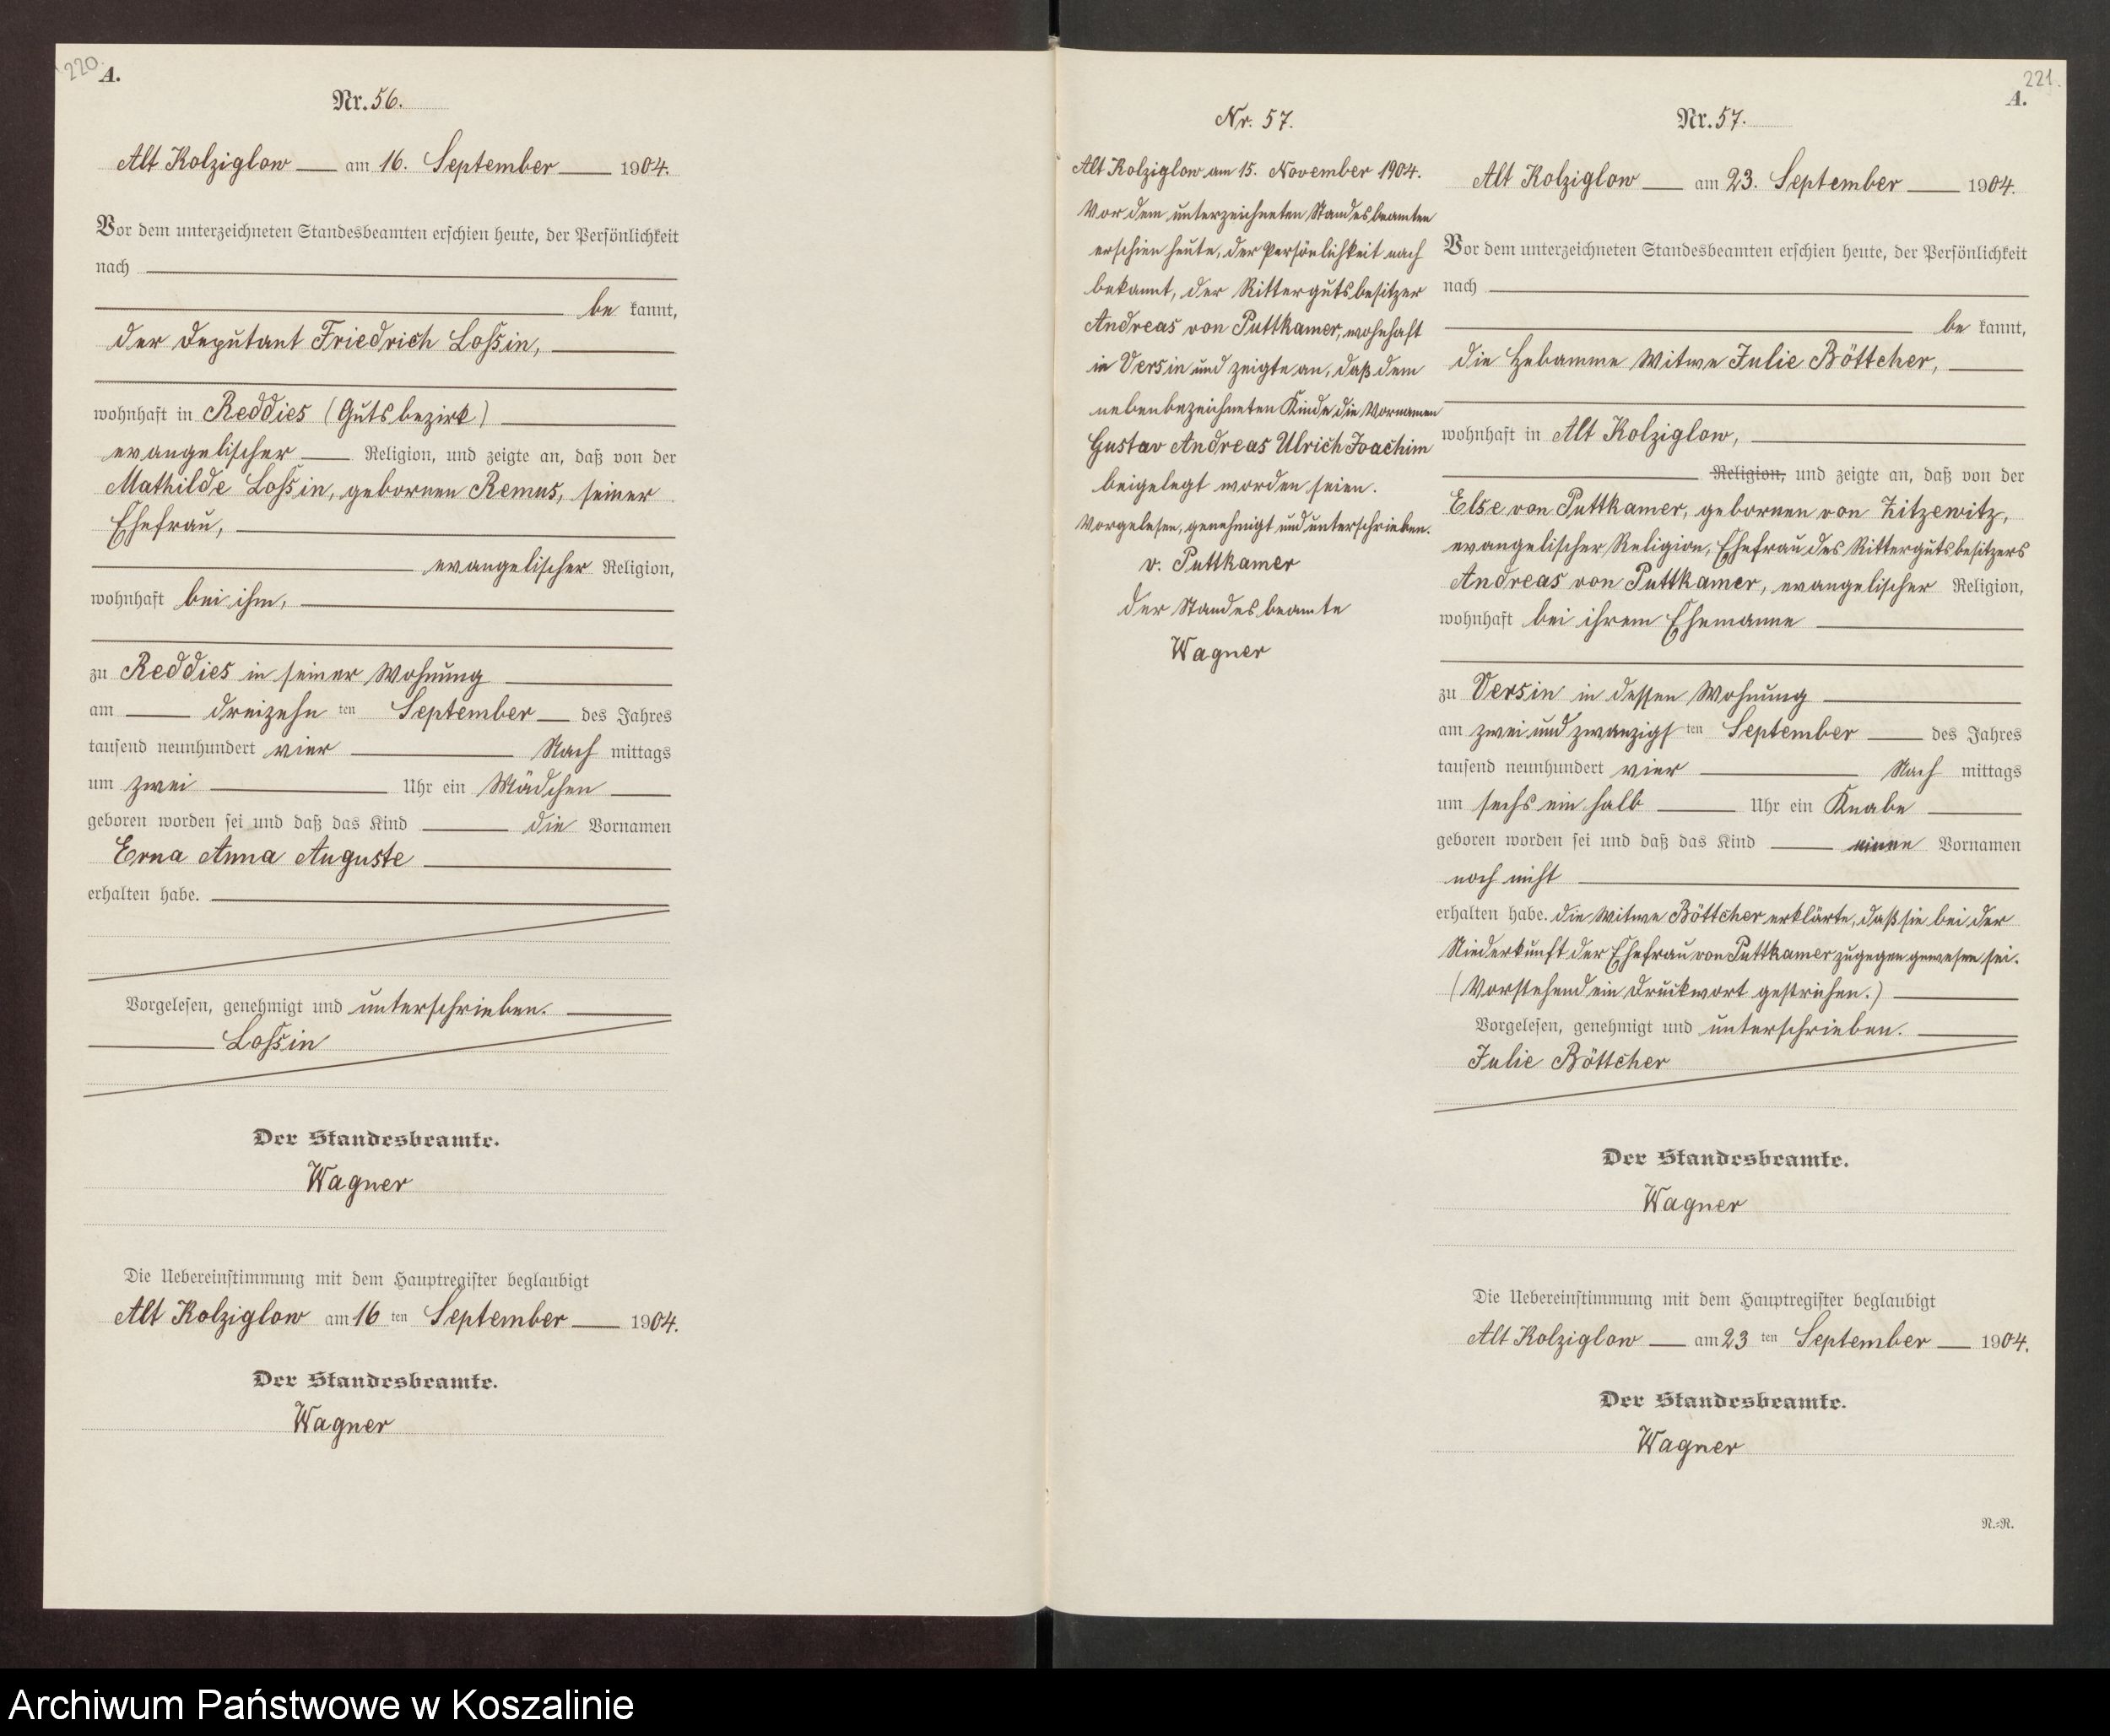 220.
A.
Nr. 56.
Alt Kolziglow am 16. September 1904.
Vor dem unterzeichneten Standesbeamten erschien heute, der Persönlichkeit
nach
be kannt,
der Deputant Friedrich Lossin,
wohnhaft in Reddies (Gutsbezirk)
evangelischer Religion, und zeigte an, daß von der
Mathilde Lossin, gebornen Remus, seiner
Ehefrau,
evangelischer Religion,
wohnhaft bei ihm,
zu Reddies in seiner Wohnung
am dreizehn ten September des Jahres
tausend neunhundert vier Nach mittags
um zwei Uhr ein Mädchen
geboren worden sei und daß das Kind die Vornamen
Erna Anna Auguste
erhalten habe.
Vorgelesen, genehmigt und unterschrieben.
Lossin
Der Standesbeamte.
Wagner
Die Uebereinstimmung mit dem Hauptregister beglaubigt
Alt Kolziglow am 16 ten September 1904.
Der Standesbeamte.
Wagner
Nr. 57.
Alt Kolziglow am 15. November 1904.
Vor dem unterzeichneten Standesbeamten
erschien heute, der Persönlichkeit nach
bekannt, der Rittergutsbesitzer
Andreas von Puttkamer, wohnhaft
in Versin und zeigte an, daß dem
nebenbezeichneten Kinde die Vornamen
Gustav Andreas Ulrich Joachim
beigelegt worden seien.
Vorgelesen, genehmigt und unterschrieben.
v. Puttkamer
Der Standesbeamte
Wagner
221.
A.
Nr. 57.
Alt Kolziglow am 23. September 1904.
Vor dem unterzeichneten Standesbeamten erschien heute, der Persönlichkeit
nach
be kannt,
die Hebamme Witwe Julie Böttcher,
wohnhaft in Alt Kolziglow,
Religion, und zeigte an, daß von der
Else von Puttkamer, gebornen von Zitzewitz,
evangelischer Religion, Ehefrau des Rittergutsbesitzers
Andreas von Puttkamer, evangelischer Religion,
wohnhaft bei ihrem Ehemanne
zu Versin in dessen Wohnung
am zwei und zwanzigs ten September des Jahres
tausend neunhundert vier Nach mittags
um sechs ein halb Uhr ein Knabe
geboren worden sei und daß das Kind einen Vornamen
noch nicht
erhalten habe. Die Witwe Böttcher erklärte, daß sie bei der
Niederkunft der Ehefrau von Puttkamer zugegen gewesen sei.
(Vorstehend ein Druckwort gestrichen.)
Vorgelesen, genehmigt und unterschrieben.
Julie Böttcher
Der Standesbeamte.
Wagner
Die Uebereinstimmung mit dem Hauptregister beglaubigt
Alt Kolziglow am 23 ten September 1904.
Der Standesbeamte.
Wagner
N.=R.
Archiwum Państwowe w Koszalinie